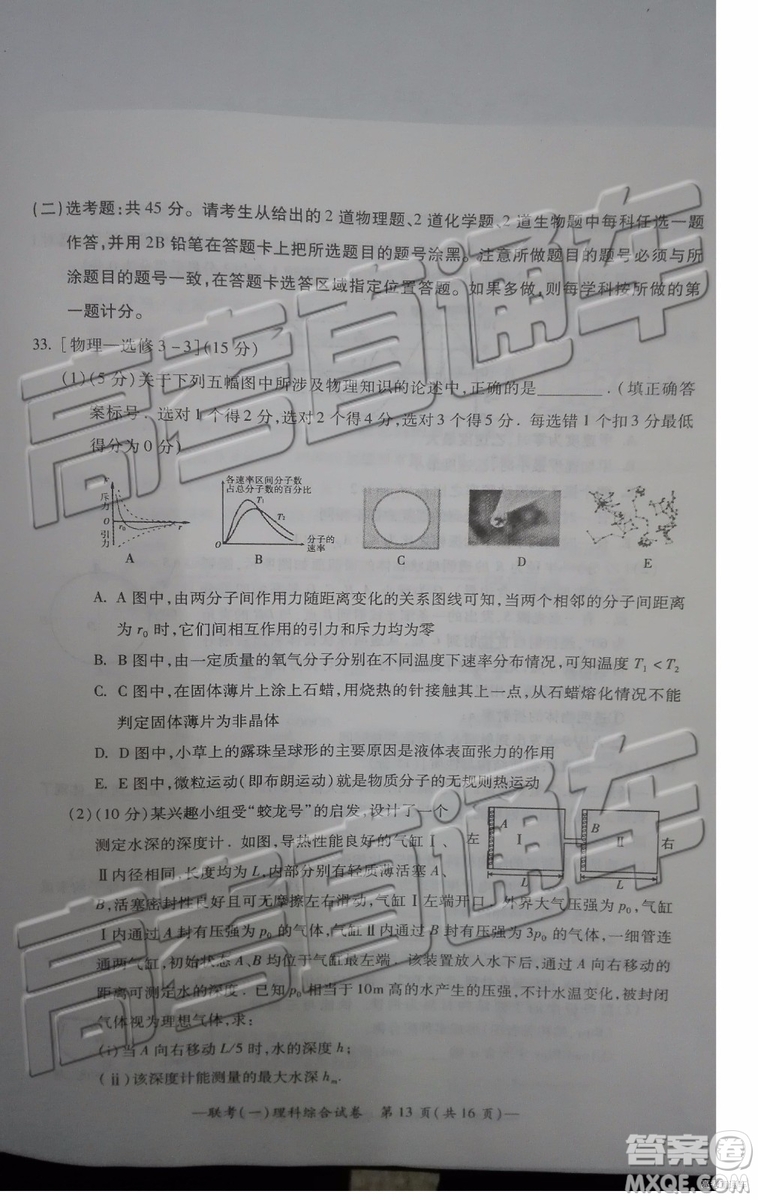 (二)选考题:共45分。请考生从给出的2道物理题、2道化学题、2道生物题中每科任选一题
作答,并用2B铅笔在答题卡上把所选题目的题号涂黑。注意所做题目的题号必须与所
涂题目的题号一致,在答题卡选答区域指定位置答题。如果多做,则每学科按所做的第
一题计分。
33.[物理—选修3-3](15分)
(1)(5分)关于下列五幅图中所涉及物理知识的论述中,正确的是______.(填正确答
案标号.选对1个得2分,选对2个得4分,选对3个得5分.每选错1个扣3分最低
得分为0分)
斥力
O
引力
r₀
r
各速率区间分子数
占总分子数的百分比
T₁
T₂
分子的
速率
A B C D E
A. A图中,由两分子间作用力随距离变化的关系图线可知,当两个相邻的分子间距离
为r₀时,它们间相互作用的引力和斥力均为零
B. B图中,由一定质量的氧气分子分别在不同温度下速率分布情况,可知温度T₁<T₂
C. C图中,在固体薄片上涂上石蜡,用烧热的针接触其上一点,从石蜡熔化情况不能
判定固体薄片为非晶体
D. D图中,小草上的露珠呈球形的主要原因是液体表面张力的作用
E. E图中,微粒运动(即布朗运动)就是物质分子的无规则热运动
(2)(10分)某兴趣小组受“蛟龙号”的启发,设计了一个
测定水深的深度计.如图,导热性能良好的气缸Ⅰ、
Ⅱ内径相同、长度均为L,内部分别有轻质薄活塞A、
B,活塞密封性良好且可无摩擦左右滑动,气缸Ⅰ左端开口.外界大气压强为p₀,气缸
Ⅰ内通过A封有压强为p₀的气体,气缸Ⅱ内通过B封有压强为3p₀的气体,一细管连
通两气缸,初始状态A、B均位于气缸最左端.该装置放入水下后,通过A向右移动的
距离可测定水的深度.已知p₀相当于10m高的水产生的压强,不计水温变化,被封闭
气体视为理想气体,求:
左 A Ⅰ B Ⅱ 右
L L
(ⅰ)当A向右移动L/5时,水的深度h;
(ⅱ)该深度计能测量的最大水深hₘ.
—联考(一)理科综合试卷 第13页(共16页)—
高考直通车
答案圈
MXQE.COM